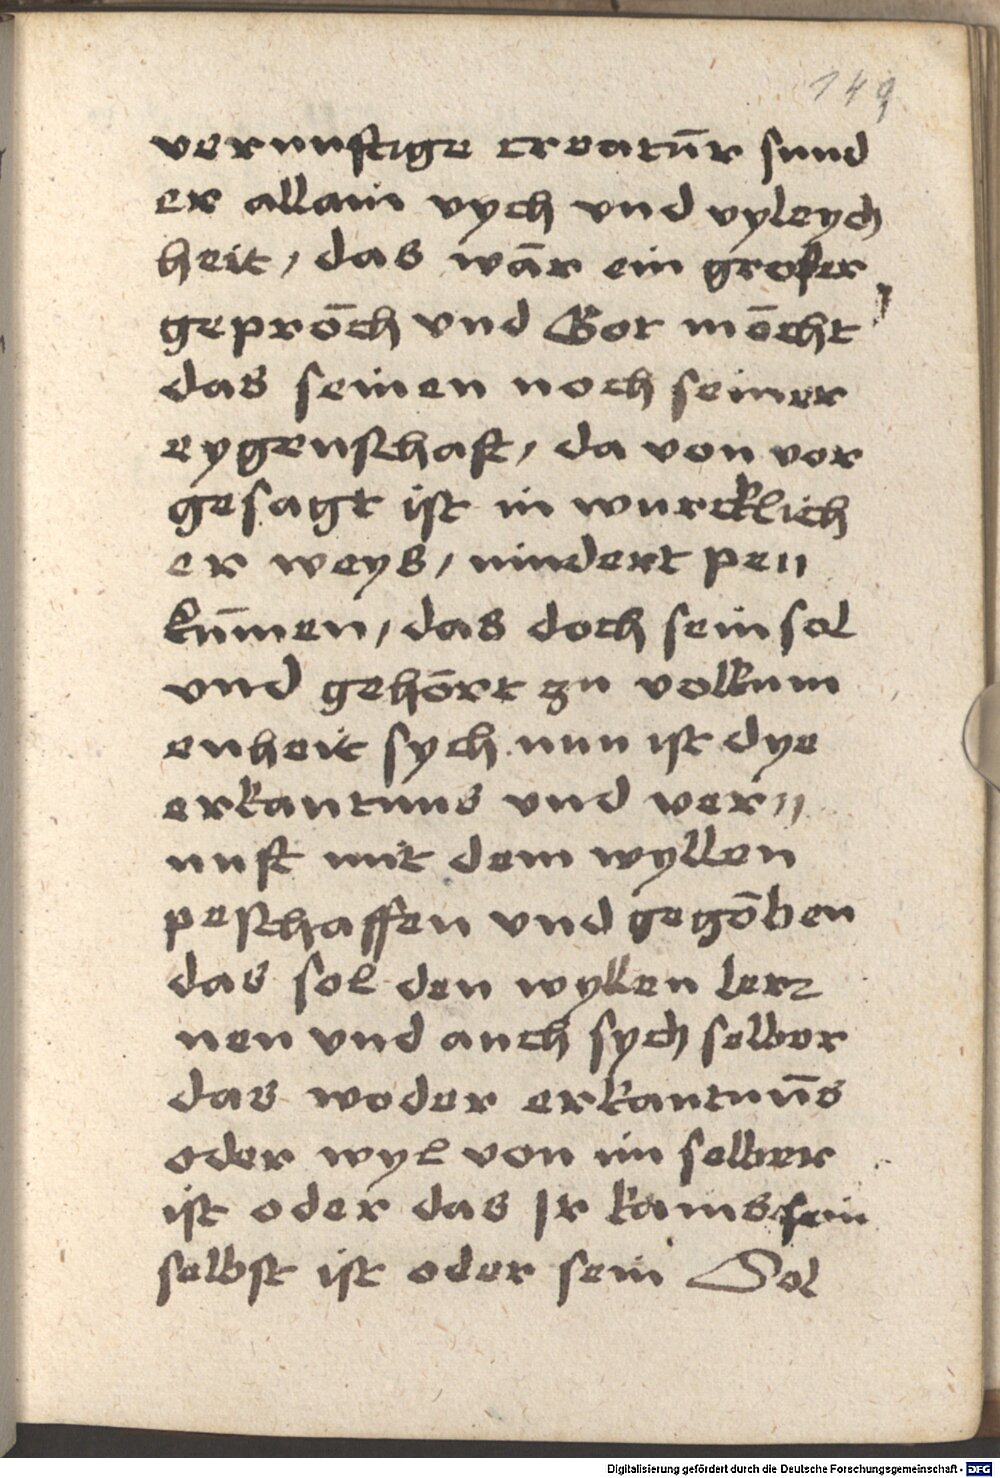 149
vernunftige creatūr sund
er allain vych vnd vyleych
heit / das wār ein groser
geprōch vnd Got mōcht
das seinen noch seiner
eygenschaft / da von vor
gesagt ist in wurcklich
er weys / nindert pe〃
kūmen / das doch sein sol
vnd gehōrt zu volkum
enheit sych nun ist dye
erkantnus vnd ver〃
nuft mit dem wyllen
peschaffen vnd gegōben
das sol den wyllen ler
nen vnd auch sych selber
das weder erkantnūs
oder wyl von im selber
ist oder das Ir kains sein
selbst ist oder sein Sol
Digitalisierung gefördert durch die Deutsche Forschungsgemeinschaft - DFG